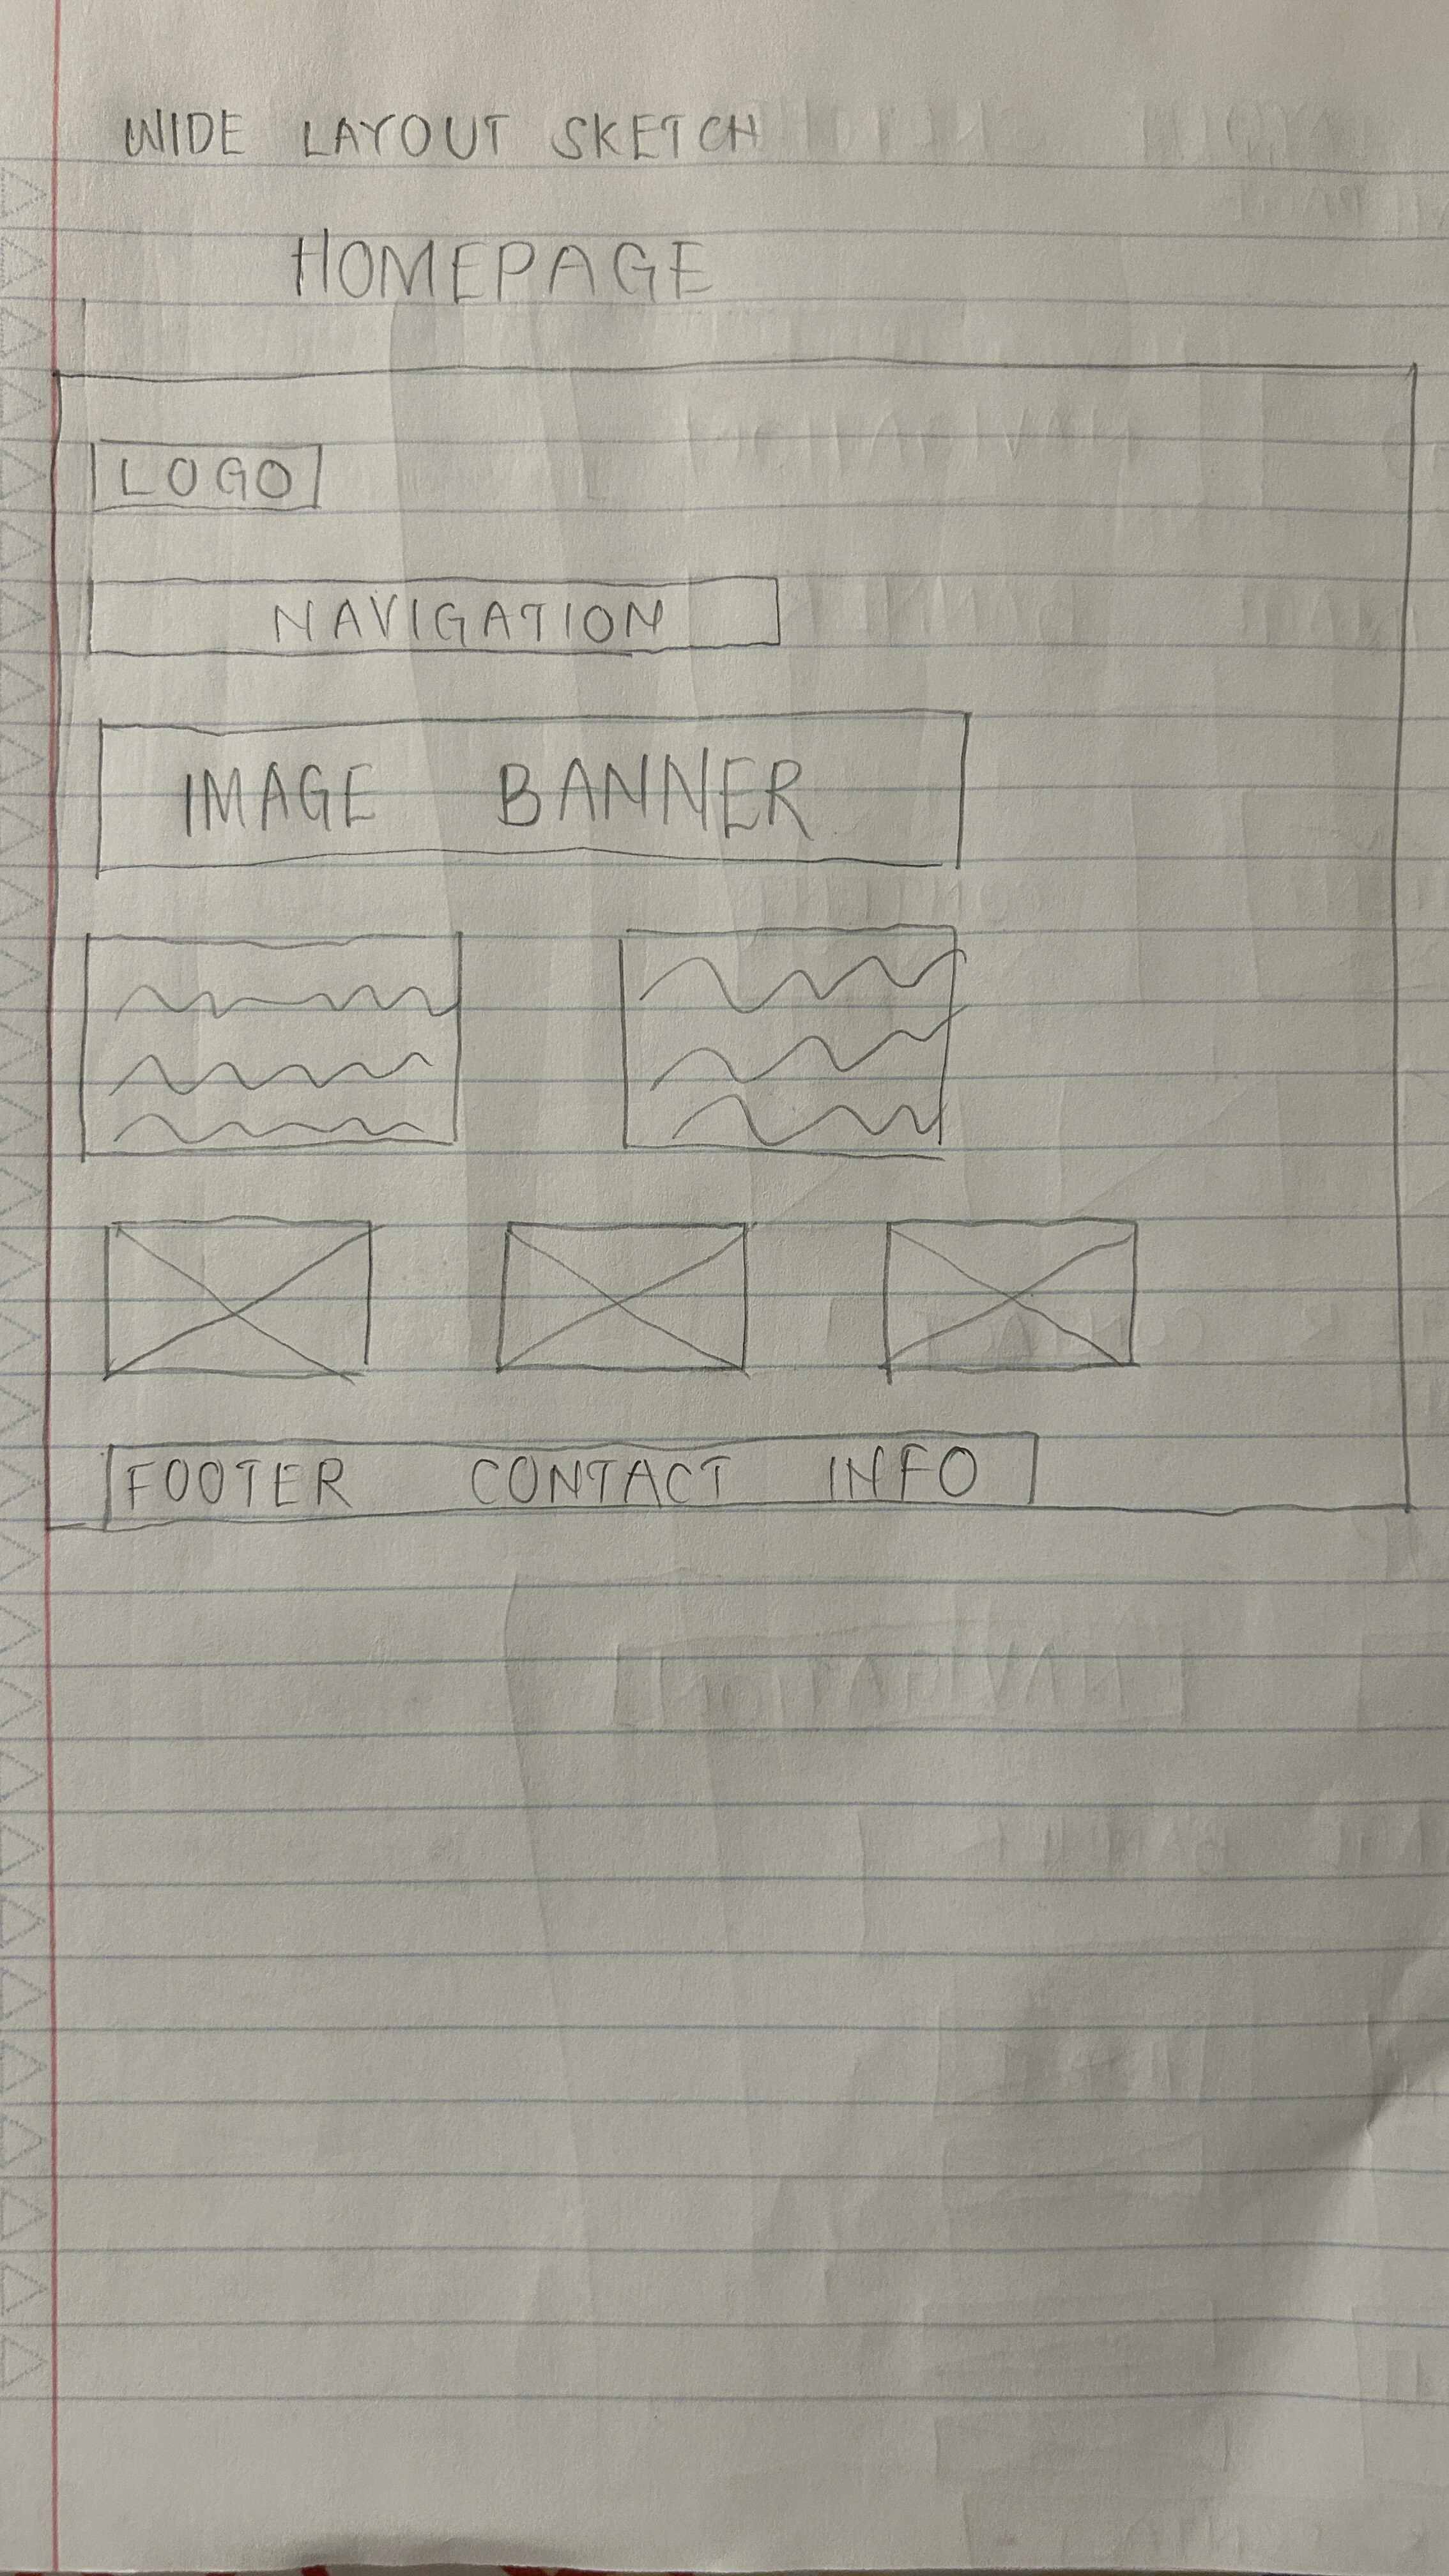 WIDE LAYOUT SKETCH
HOMEPAGE
LOGO
NAVIGATION
IMAGE BANNER
FOOTER CONTACT INFO